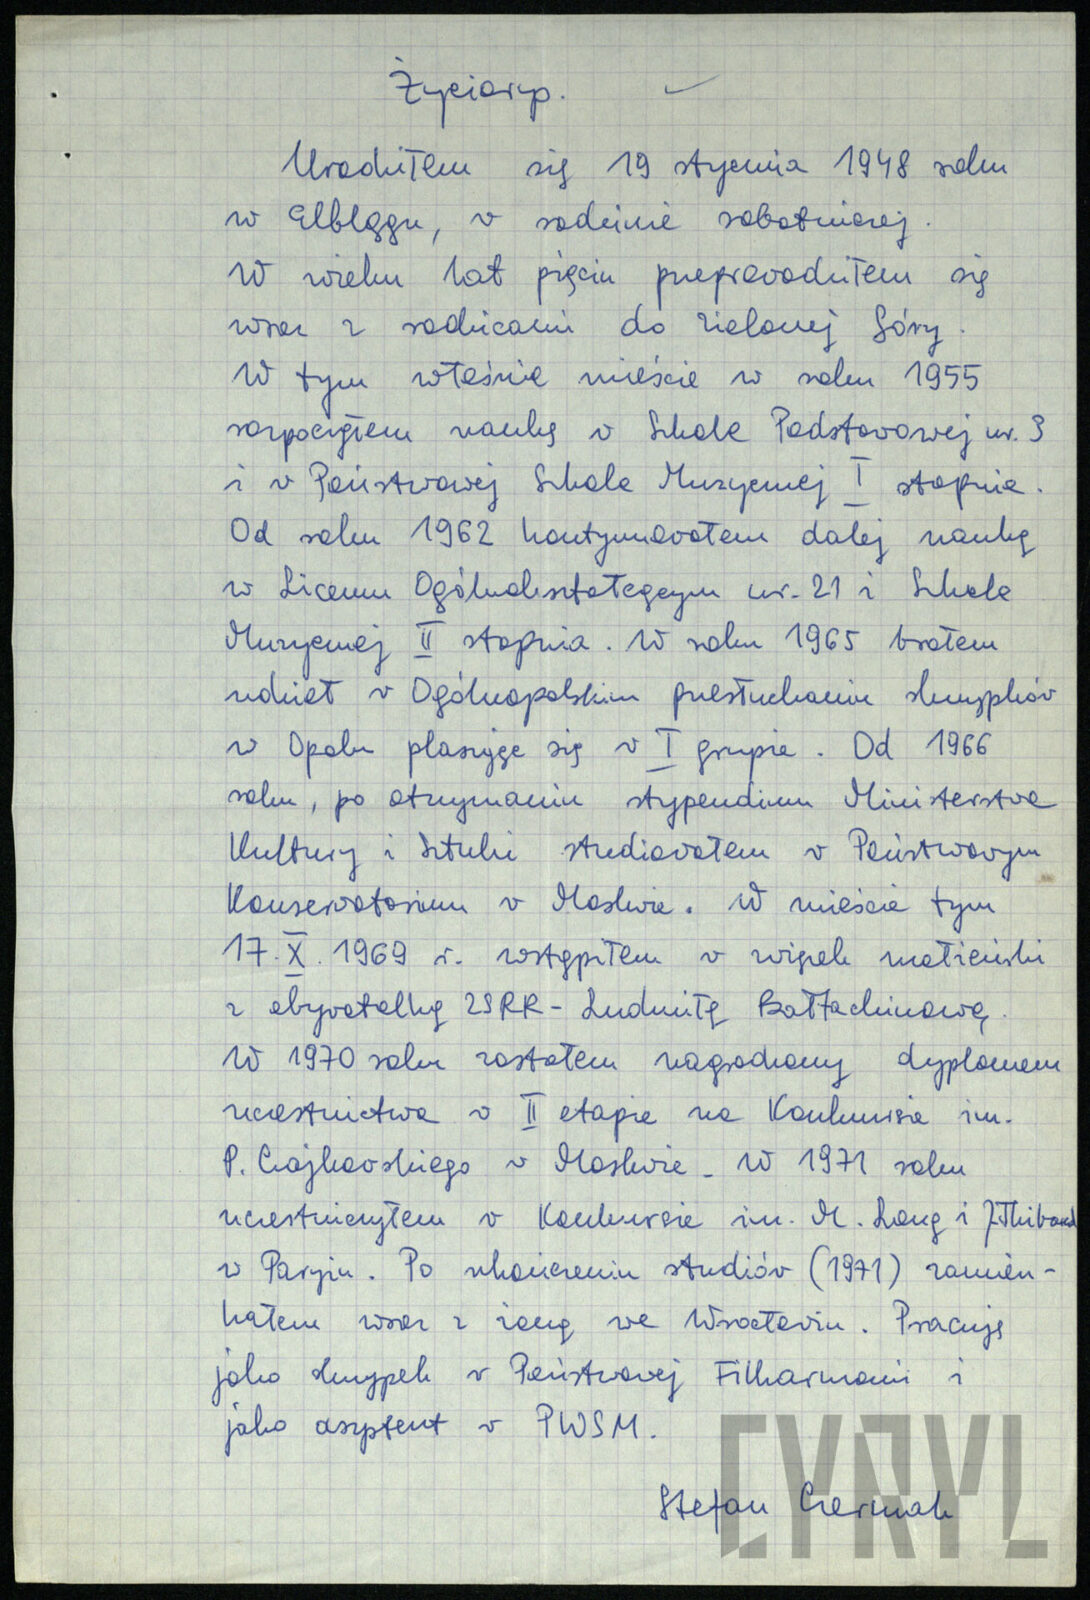 Życiorys.
Urodziłem się 19 stycznia 1948 roku
w Elblągu, w rodzinie robotniczej.
W wieku lat pięciu przeprowadziłem się
wraz z rodzicami do Zielonej Góry.
W tym właśnie mieście w roku 1955
rozpocząłem naukę w Szkole Podstawowej nr. 3
i w Państwowej Szkole Muzycznej I stopnia.
Od roku 1962 kontynuowałem dalej naukę
w Liceum Ogólnokształcącym nr. 21 i Szkole
Muzycznej II stopnia. W roku 1965 brałem
udział w Ogólnopolskim przesłuchaniu skrzypków
w Opolu plasując się w I grupie. Od 1966
roku, po otrzymaniu stypendium Ministerstwa
Kultury i Sztuki studiowałem w Państwowym
Konserwatorium w Moskwie. W mieście tym
17.X.1969 r. wstąpiłem w związek małżeński
z obywatelką ZSRR - Ludmiłą Bałłachinową.
W 1970 roku zostałem nagrodzony dyplomem
uczestnictwa w II etapie na Konkursie im.
P. Czajkowskiego w Moskwie. W 1971 roku
uczestniczyłem w Konkursie im. M. Long i J. Thibaud
w Paryżu. Po ukończeniu studiów (1971) zamiesz-
kałem wraz z żoną we Wrocławiu. Pracuję
jako skrzypek w Państwowej Filharmonii i
jako asystent w PWSM.
Stefan Czermak
CYRYL